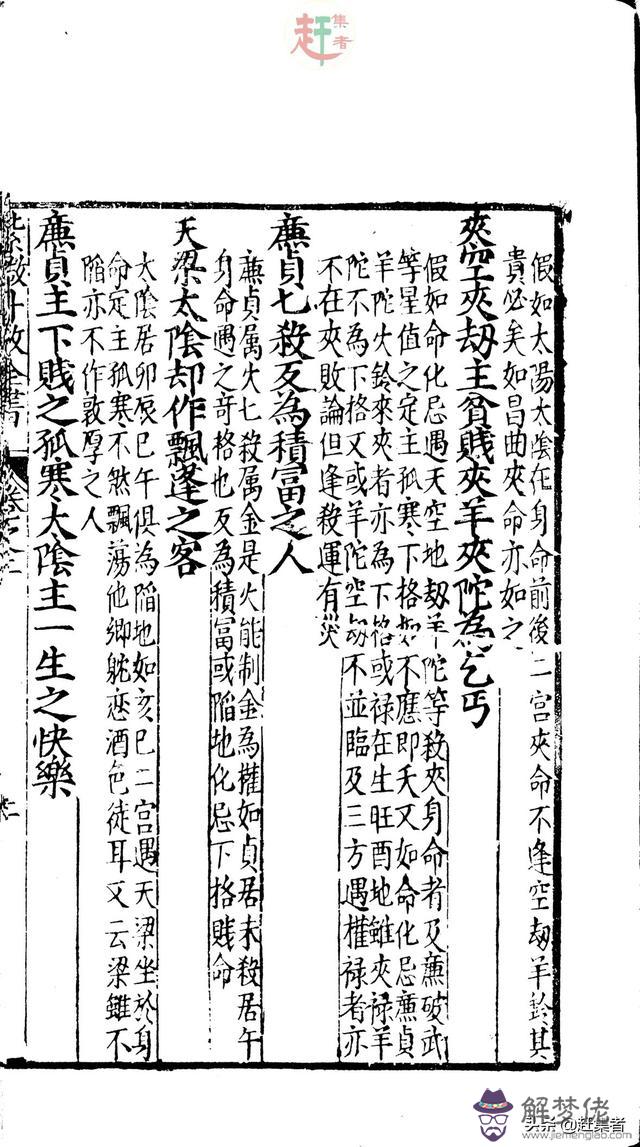 赶集者
假如太陽太陰在身命前後二宮夾命不逢空刼羊鈴其
貴必矣如昌曲夾命亦如之
夾空夾刼主貧賤夾羊夾陀為乞丐
假如命化忌遇天空地刼羊陀等殺夾身命者及亷破武
等星值之定主孤寒下格如不應即夭又如命化忌亷貞
羊陀火鈴來夾者亦為下格或禄在生旺酉地雖夾禄羊
陀不為下格又或羊陀空刼不並臨及三方遇權禄者亦
不在夾敗論但逢殺運有災
亷貞七殺反為積富之人
亷貞属火七殺属金是火能制金為權如貞居未殺居午
身命遇之奇格也反為積富或陷地化忌下格賤命
天梁太陰却作飄蓬之客
太陰居卯辰巳午俱為陷地如亥巳二宮遇天梁坐於身
命定主孤寒不然飄蕩他鄉躭恋酒色徒耳又云梁雖不
陷亦不作敦厚之人
亷貞主下賤之孤寒太陰主一生之快樂
全書
頭条 @赶集者
解梦佬
www.jiemenglao.com